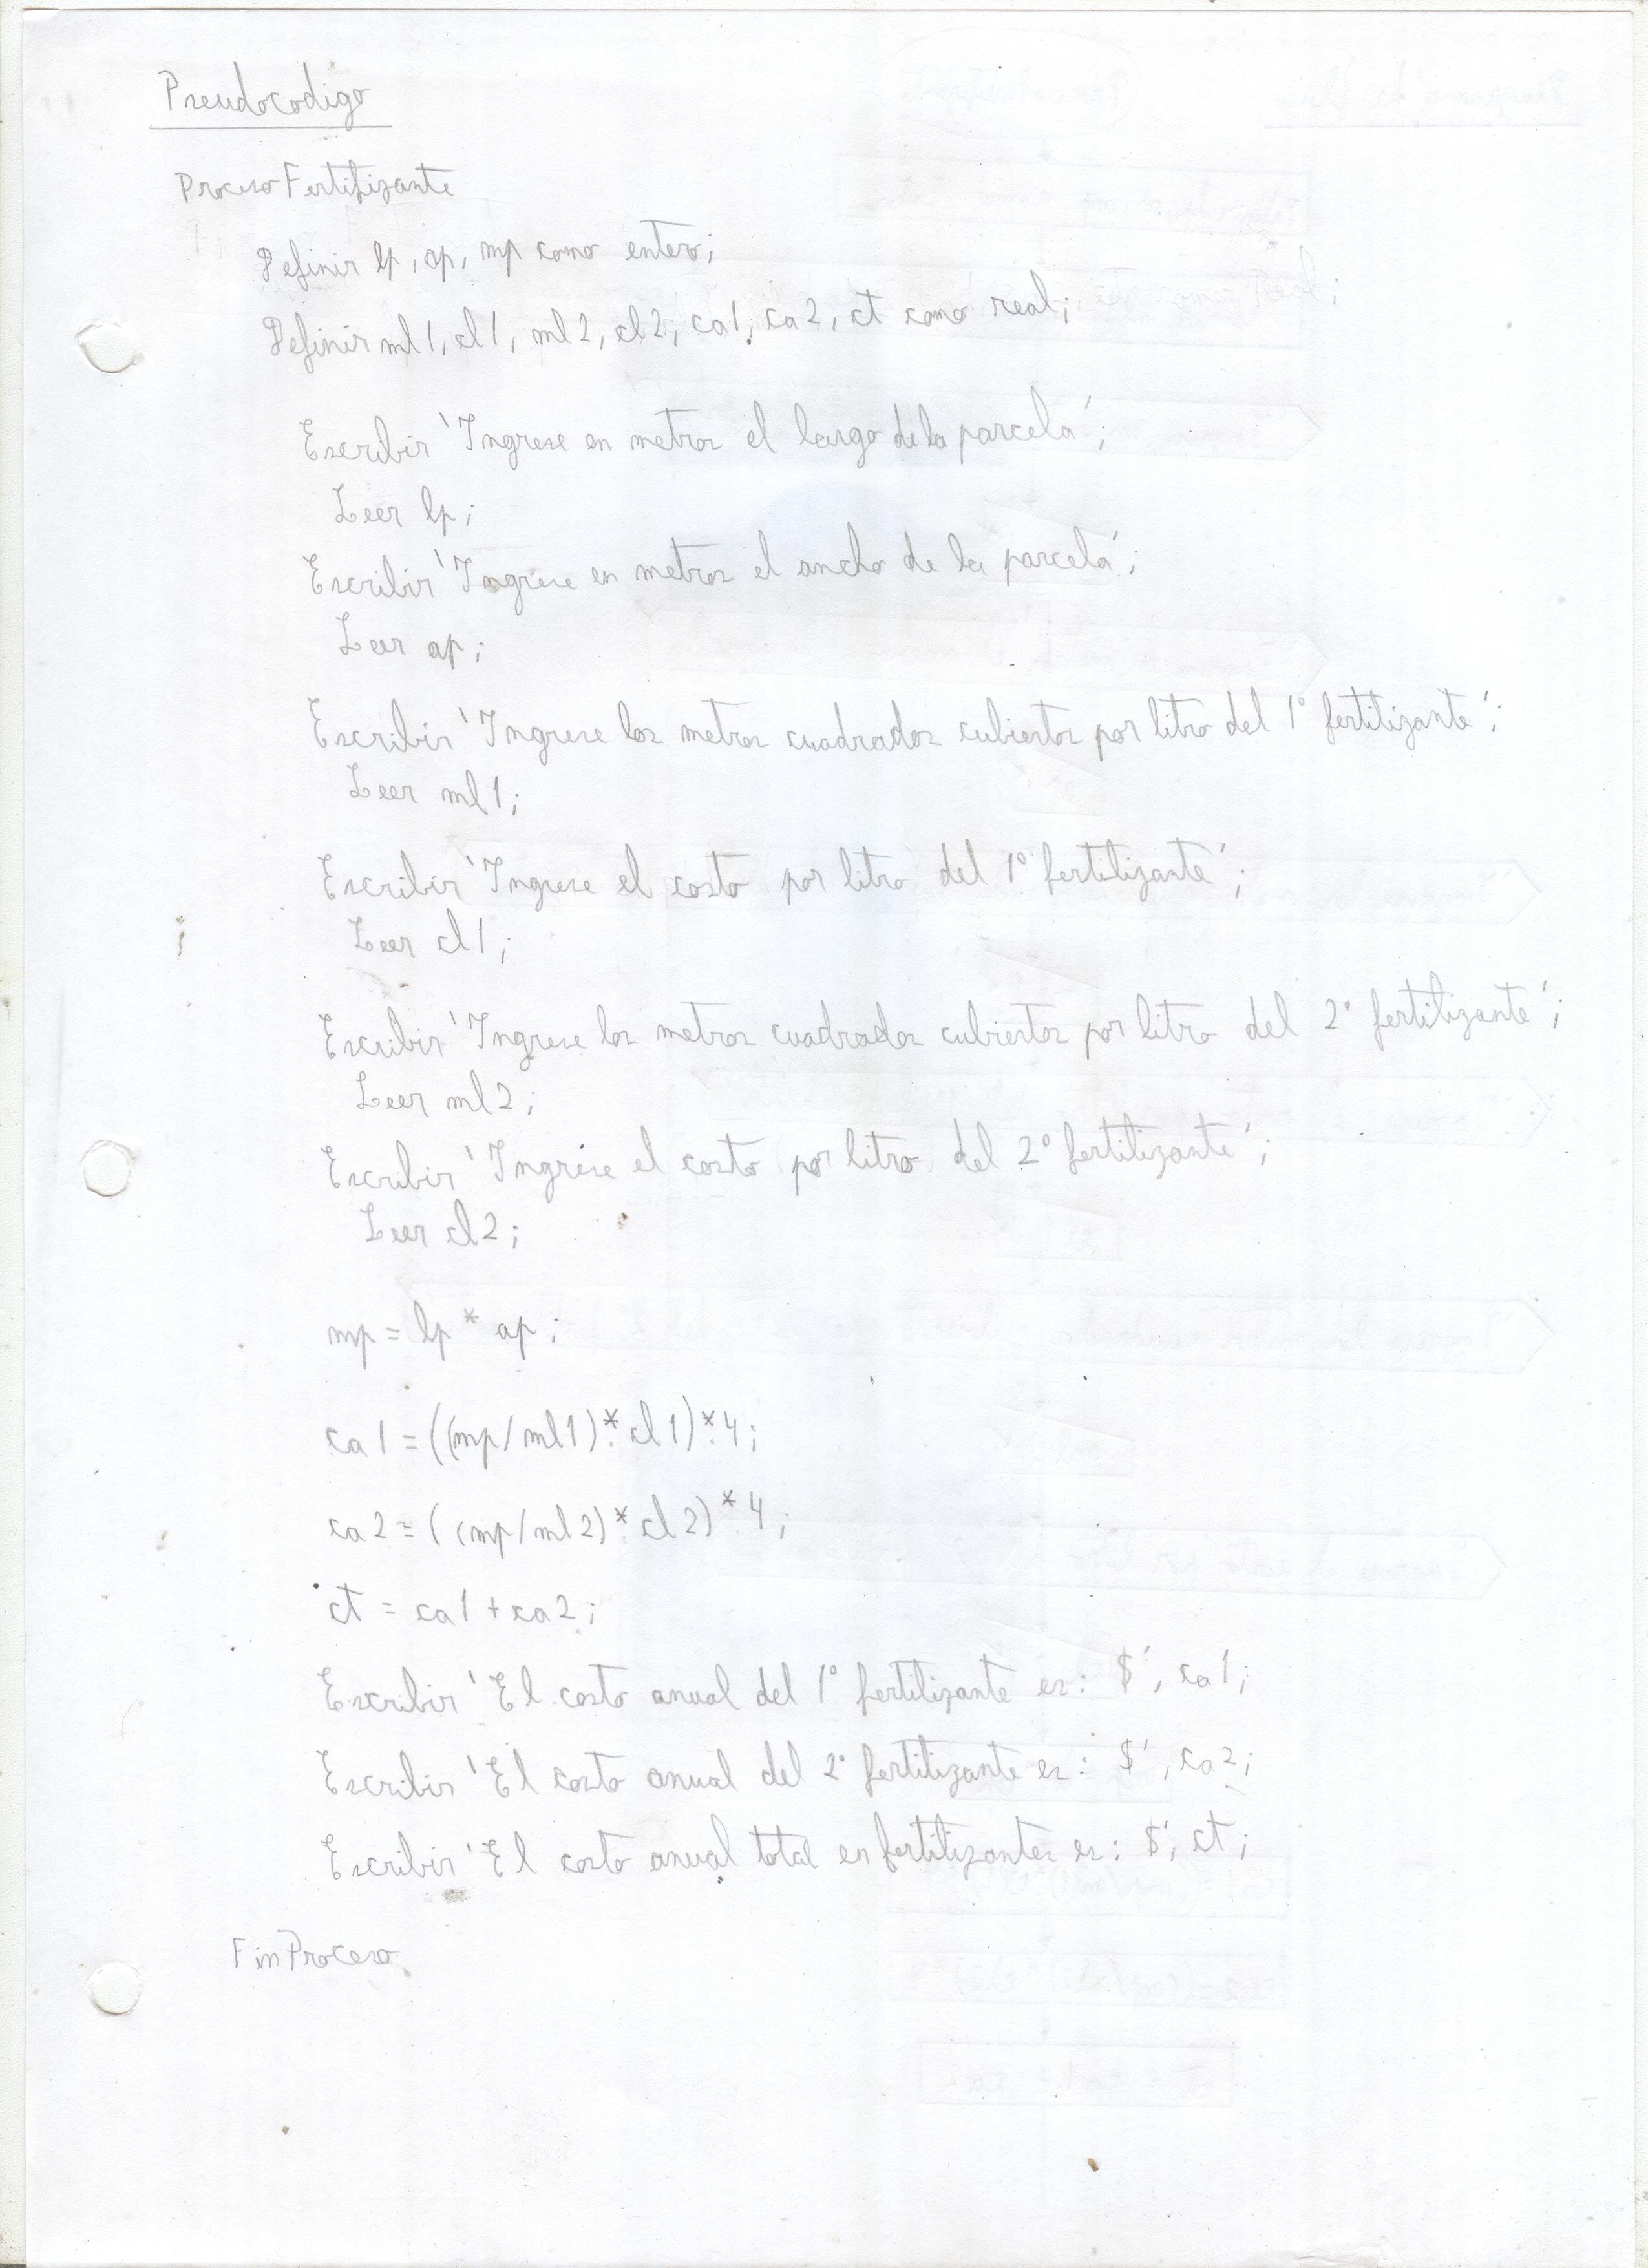 Pseudocodigo
Proceso Fertilizante
Definir lp, ap, mp como entero;
Definir ml1, cl1, ml2, cl2, ca1, ca2, ct como real;
Escribir 'Ingrese en metros el largo de la parcela';
Leer lp;
Escribir 'Ingrese en metros el ancho de la parcela';
Leer ap;
Escribir 'Ingrese los metros cuadrados cubiertos por litro del 1° fertilizante';
Leer ml1;
Escribir 'Ingrese el costo por litro del 1° fertilizante';
Leer cl1;
Escribir 'Ingrese los metros cuadrados cubiertos por litro del 2° fertilizante';
Leer ml2;
Escribir 'Ingrese el costo por litro del 2° fertilizante';
Leer cl2;
mp = lp * ap;
ca1 = ((mp/ml1)*cl1)*4;
ca2 = ((mp/ml2)*cl2)*4;
ct = ca1 + ca2;
Escribir 'El costo anual del 1° fertilizante es: $', ca1;
Escribir 'El costo anual del 2° fertilizante es: $', ca2;
Escribir 'El costo anual total en fertilizantes es: $', ct;
FinProceso